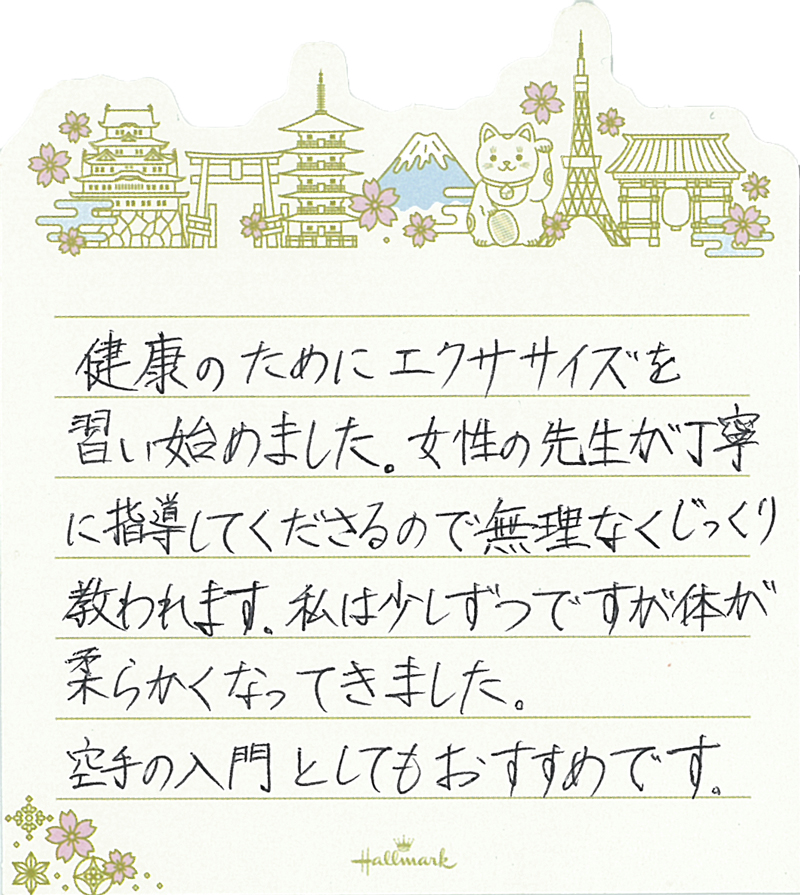 健康のためにエクササイズを
習い始めました。女性の先生が丁寧
に指導してくださるので無理なくじっくり
教われます。私は少しずつですが体が
柔らかくなってきました。
空手の入門としてもおすすめです。
Hallmark